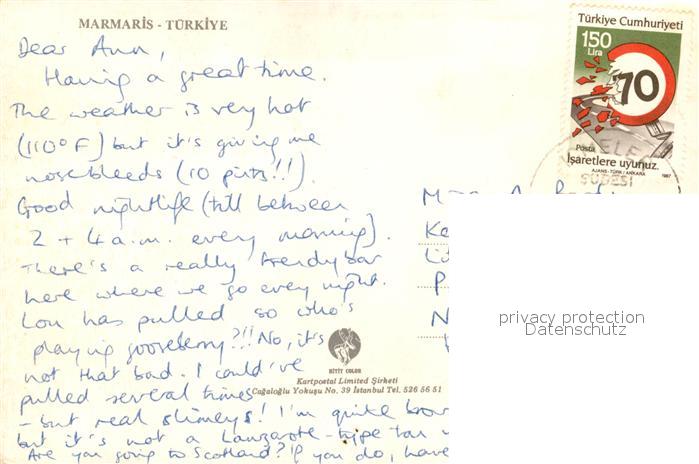 MARMARİS - TÜRKİYE
Dear Ann,
Having a great time.
The weather is very hot
(110°F) but it's giving me
nosebleeds (10 pints!!).
Good nightlife (till between
2 + 4 a.m. every morning).
There's a really trendy bar
here where we go every night.
Lou has pulled so who's
playing gooseberry?!! No, it's
not that bad. I could've
pulled several times
- but real slimeys! I'm quite brow
but it's not a Lanzarote-type tan
Are you going to Scotland? If you do, have
Türkiye Cumhuriyeti
150
Lira
70
Posta
İşaretlere uyunuz.
AJANS-TÜRK/ANKARA 1987
ŞUBESİ
privacy protection
Datenschutz
HİTİT COLOR
Kartpostal Limited Şirketi
Cağaloğlu Yokuşu No. 39 İstanbul Tel. 526 56 51